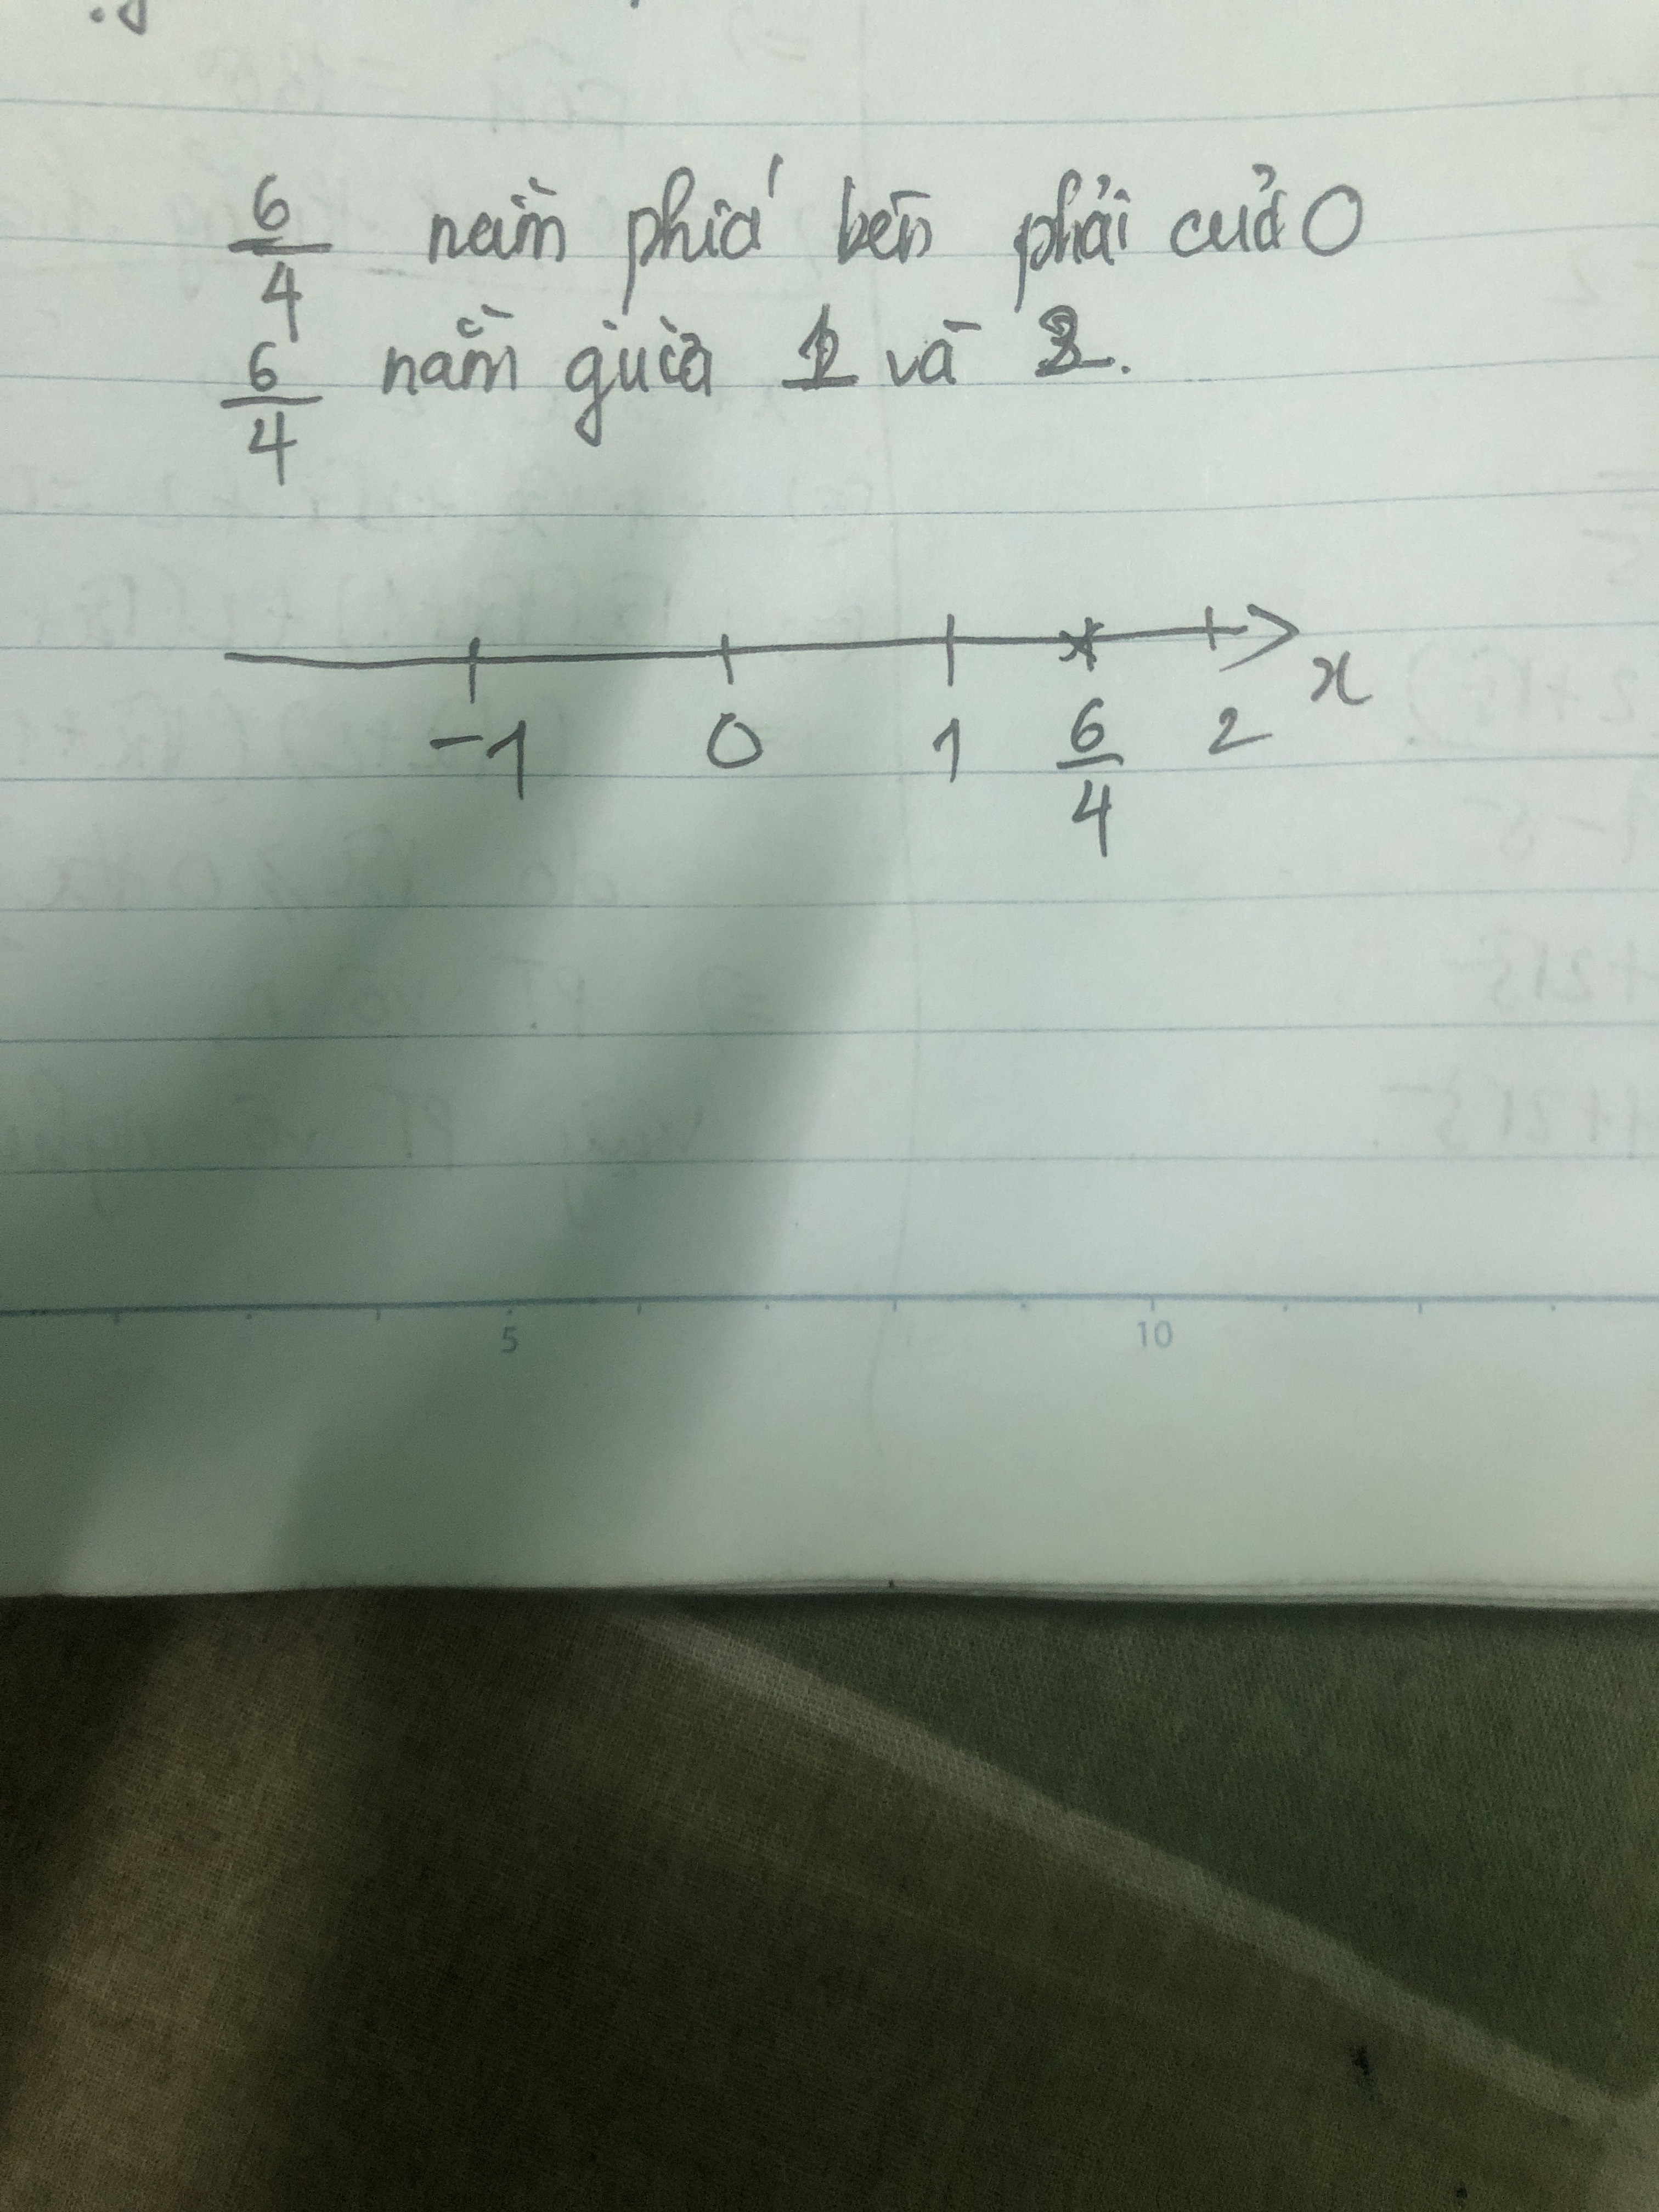 6/4 nằm phía bên phải của 0
6/4 nằm giữa 1 và 2.
-1 0 1 6/4 2 x
5 10